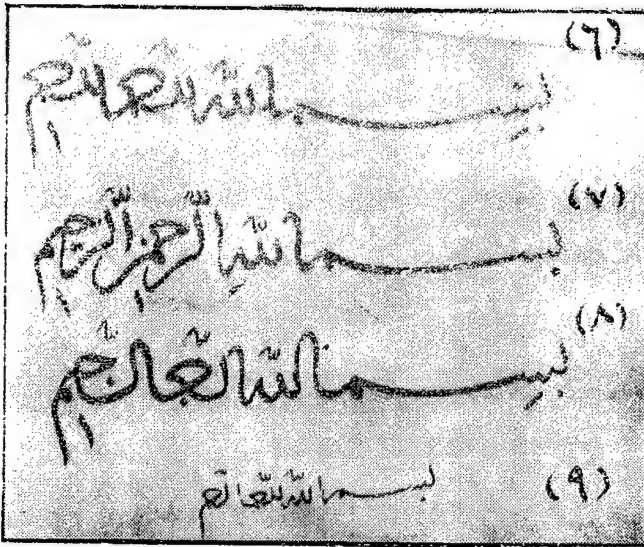 (٦) بسم الله الرحمن الرحيم
(٧) بسم الله الرحمن الرحيم
(٨) بسم الله الرحمن الرحيم
(٩) بسم الله الرحمن الرحيم